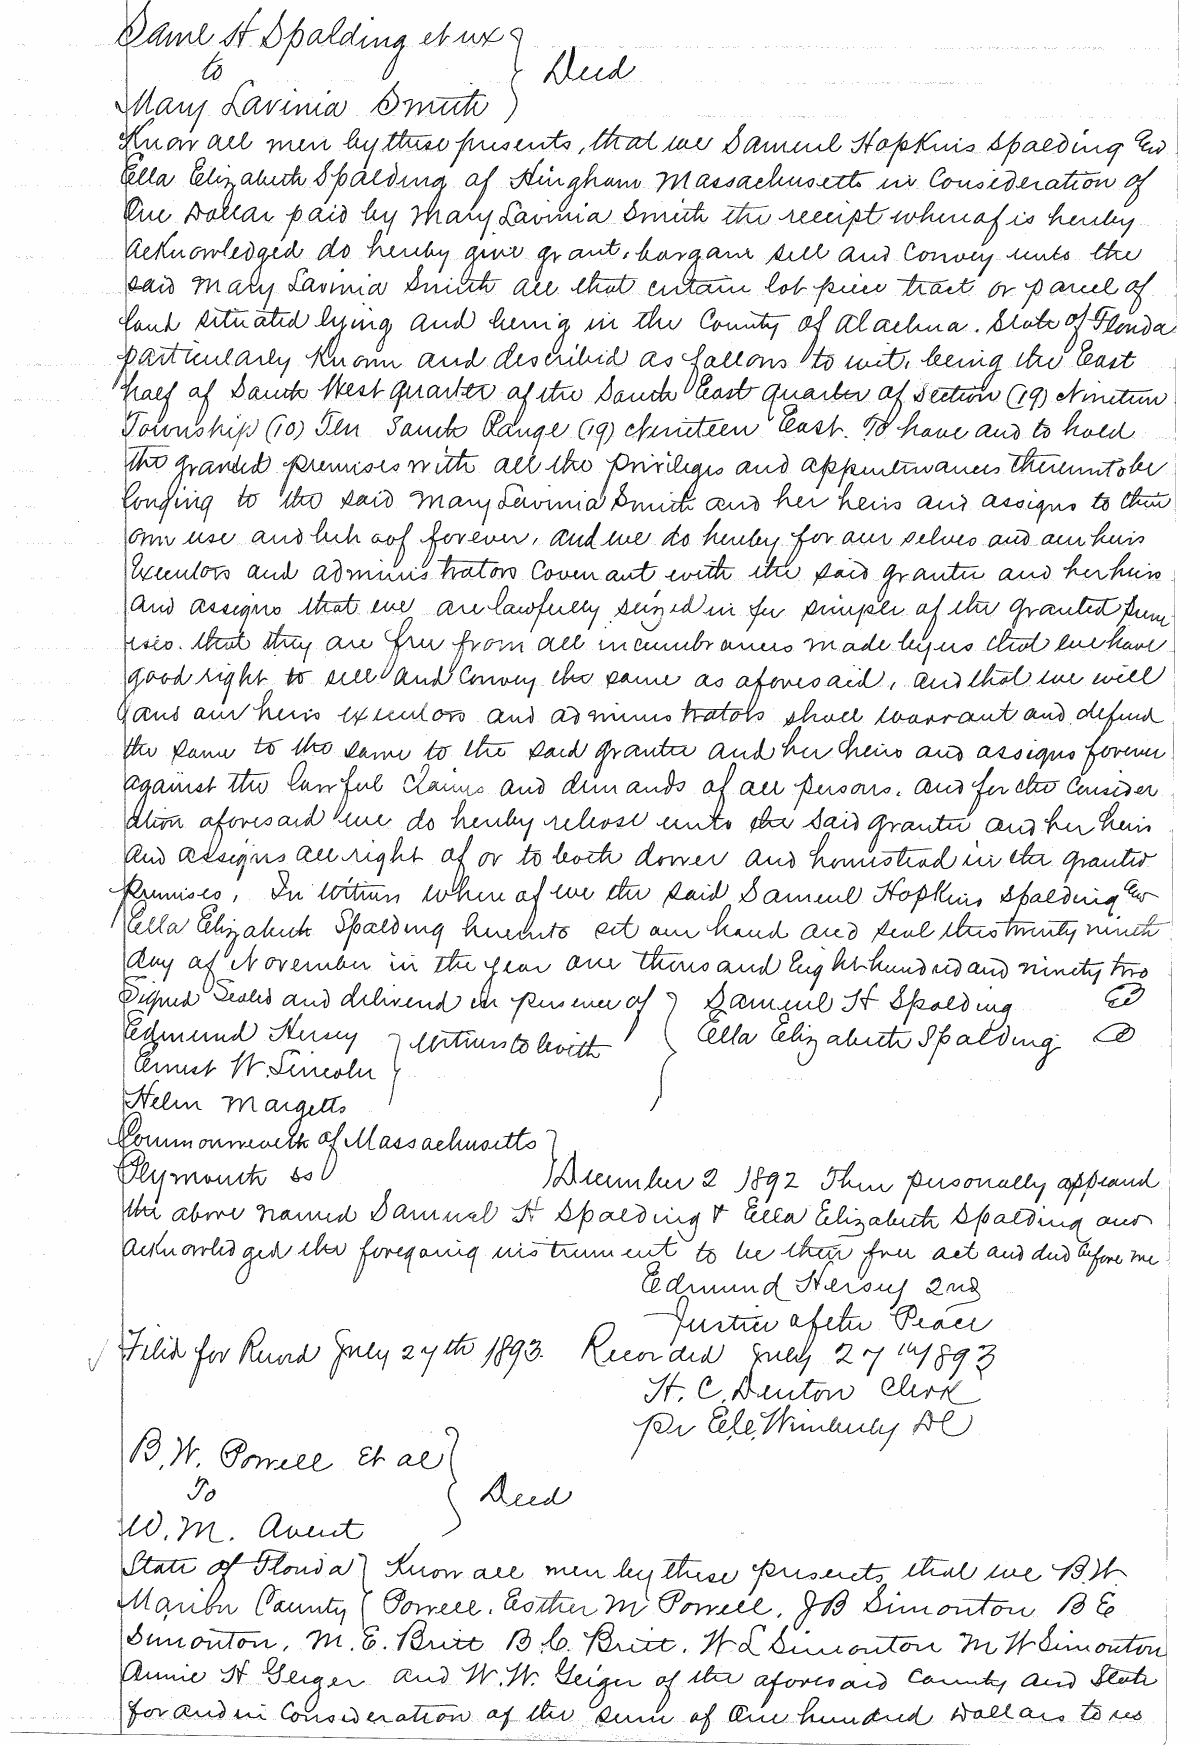 Saml H Spalding et ux
to
Deed
Mary Lavinia Smith
Know all men by these presents, that we Samuel Hopkins Spalding and
Ella Elizabeth Spalding of Hingham Massachusetts in Consideration of
One Dollar paid by Mary Lavinia Smith the receipt whereof is hereby
acknowledged do hereby give grant, bargain sell and Convey unto the
said Mary Lavinia Smith all that certain lot piece tract or parcel of
land situated lying and being in the County of Alachua. State of Florida
particularly Known and described as follows to wit, being the East
half of South West quarter of the South East quarter of Section (19) Nineteen
Township (10) Ten South Range (19) Nineteen East. To have and to hold
the granted premises with all the privileges and appurtenances thereunto be
longing to the said Mary Lavinia Smith and her heirs and assigns to their
own use and behoof forever, and we do hereby for our selves and our heirs
Executors and administrators Covenant with the said grantee and her heirs
and assigns that we are lawfully seized in fee simple of the granted prem
ises. that they are free from all incumbrances made by us that we have
good right to sell and Convey the same as aforesaid, and that we will
and our heirs executors and administrators shall warrant and defend
the same to the same to the said grantee and her heirs and assigns forever
against the lawful claims and demands of all persons. and for the Consider
ation aforesaid we do hereby release unto the said grantee and her heirs
and assigns all right of or to both dower and homestead in the granted
premises, In Witness where of we the said Samuel Hopkins Spalding and
Ella Elizabeth Spalding hereunto set our hand and seal this twenty ninth
day of November in the year one thousand Eight hundred and ninety two
Signed Sealed and delivered in presence of Samuel H Spalding
Edmund Hersey Witness to both Ella Elizabeth Spalding
Ernest W. Lincoln
Helen Margetts
Commonwealth of Massachusetts
Plymouth ss December 2 1892 Then personally appeared
the above named Samuel H Spalding & Ella Elizabeth Spalding and
acknowledged the foregoing instrument to be their free act and deed before me
Edmund Hersey 2nd
Justice of the Peace
Filed for Record July 27th 1893. Recorded July 27th 1893
H. C. Denton Clerk
pr E.C. Wimberly DC
B. W. Powell Et al
To
Deed
W. M. Avent
State of Florida Know all men by these presents that we B.W.
Marion County Powell. Esther M Powell, J B Simonton B E
Simonton, M. E. Britt B. C. Britt. W L Simonton M W Simonton
Annie H Geiger and W. W. Geiger of the aforesaid County and State
for and in Consideration of the sum of One hundred Dollars to us